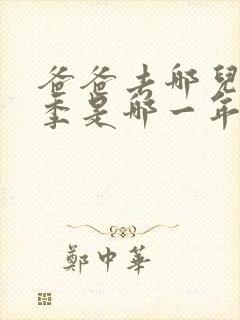 爸爸去哪兒
季是哪一年
鄭中華